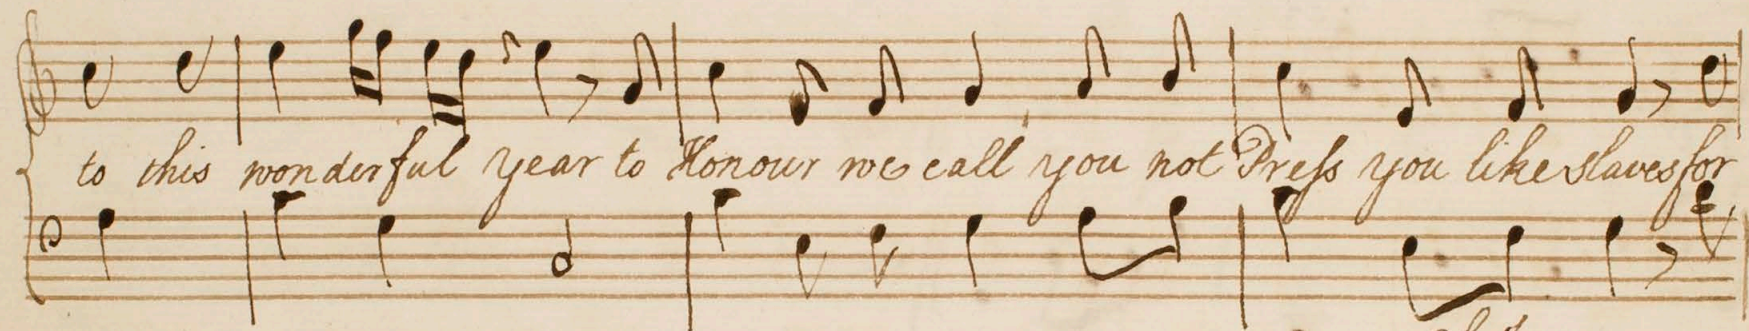 to this wonderful year to Honour we call you not Preſs you like slaves for